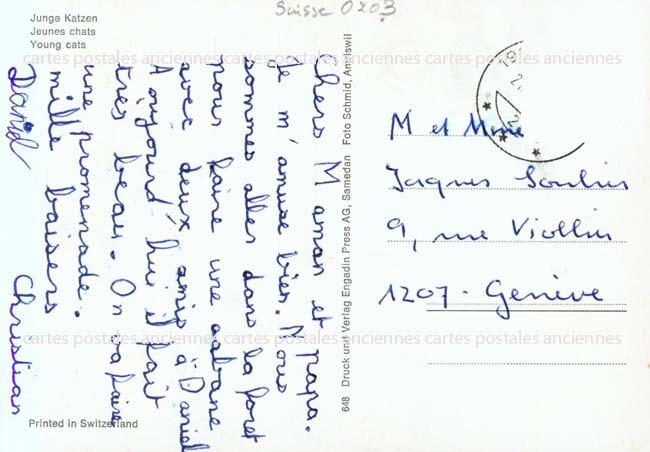 Suisse 0203
Junge Katzen
Jeunes chats
Young cats
cartes postales anciennes cartes postales anciennes cartes postales anciennes
Chers Maman et papa.
Je m'amuse bien. Nous
sommes allés dans la foret
pour faire une cabane
avec deux amis à Daniel
Aoujourd'hui il fait
très beau. On va faire
une promenade.
mille baisers
Daniel Christian
648 Druck und Verlag Engadin Press AG, Samedan Foto Schmid, Amriswil
M et Mme
Jaques
9, rue Viollin
1207. Genève
cartes postales anciennes cartes postales anciennes cartes postales anciennes
Printed in Switzerland